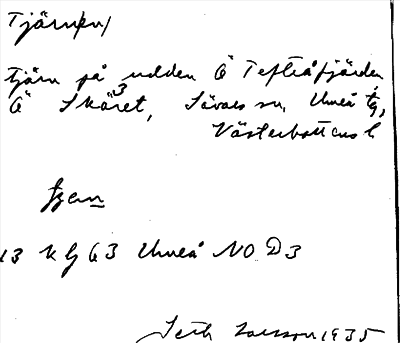 Tjärn/en/
Tjärn på udden Ö Tefteåfjärden
Ö Skäret, Sävars sn, Umeå tg,
3
Västerbottens l
13 K G 63 Umeå NO D3
Seth Larsson 1935